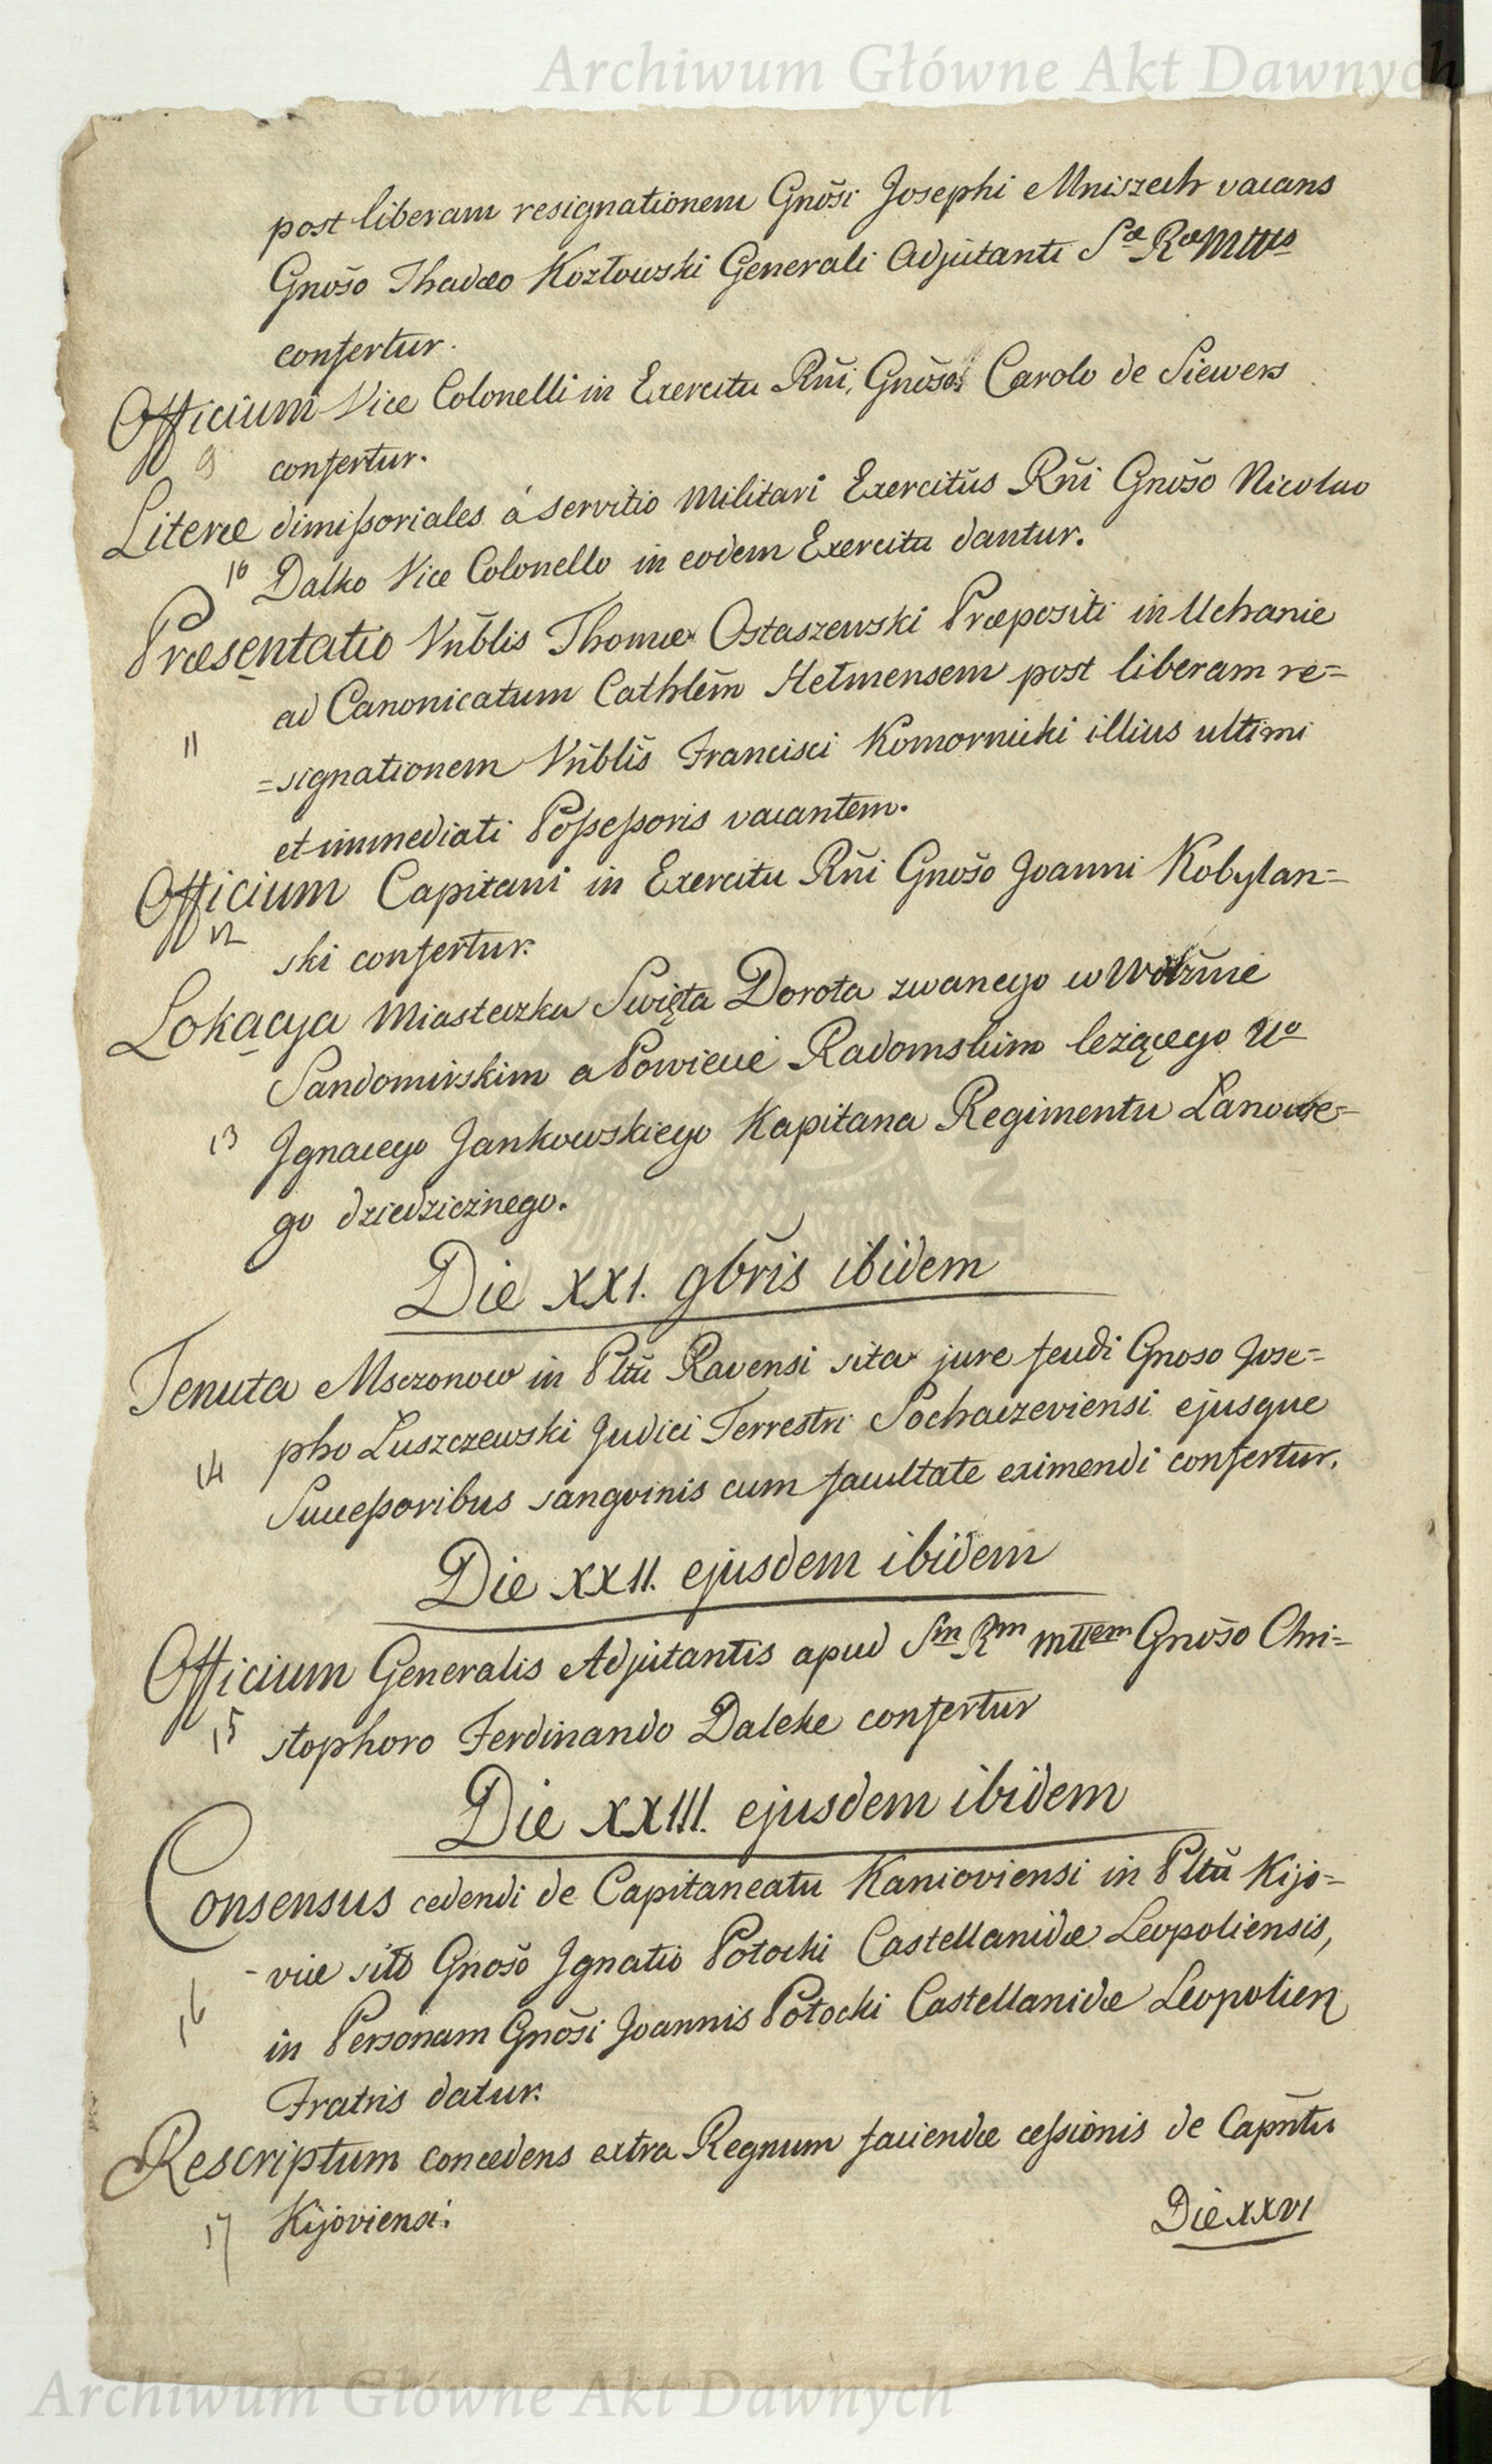 Archiwum Główne Akt Dawnych
post liberam resignationem Gnŏsi Josephi Mniszech vacans
Gnŏso Thadæo Kozłowski Generali Adjutanti Sæ Ræ Mttis
confertur.
Officium Vice Colonelli in Exercitu Rñi, Gnŏso Carolo de Siewers
9 confertur.
Literæ dimissoriales á servitio Militari Exercitûs Rñi Gnŏso Nicolao
10 Dalko Vice Colonello in eodem Exercitu dantur.
Præsentatio Vñblis Thomæ Ostaszewski Præpositi in Uchanie
ad Canonicatum Cathlem̃ Hełmensem post liberam re=
11 =signationem Vñblis Francisci Komornicki illius ultimi
et immediati Possessoris vacantem.
Officium Capitani in Exercitu Rñi Gnŏso Joanni Kobylan=
12 ski confertur.
Lokacya Miasteczka Swięta Dorota zwanego w Wdztwie
Sandomirskim a Powiecie Radomskim leżącego Uo
13 Jgnacego Jankowskiego Kapitana Regimentu Lanowe=
go dziedzicznego.
Die XXI. 9bris ibidem
Tenuta Msczonow in Pltũ Ravensi sita jure feudi Gnoso Jose=
14 pho Łuszczewski Judici Terrestri Sochaczeviensi ejusque
Successoribus sangvinis cum facultate eximendi confertur.
Die XXII. ejusdem ibidem
Officium Generalis Adjutantis apud Sm Rm Mttem Gnŏso Chri=
15 stophoro Ferdinando Daleke confertur
Die XXIII. ejusdem ibidem
Consensus cedendi de Capitaneatu Kanioviensi in Pltũ Kijo=
-viæ sito Gnŏso Jgnatio Potocki Castellanidæ Leopoliensis,
16 in Personam Gnŏsi Joannis Potocki Castellanidæ Leopolien
Fratris datur.
Rescriptum concedens extra Regnum faciendæ cessionis de Capñtu
17 Kijoviensi.
Die XXVI
Archiwum Główne Akt Dawnych